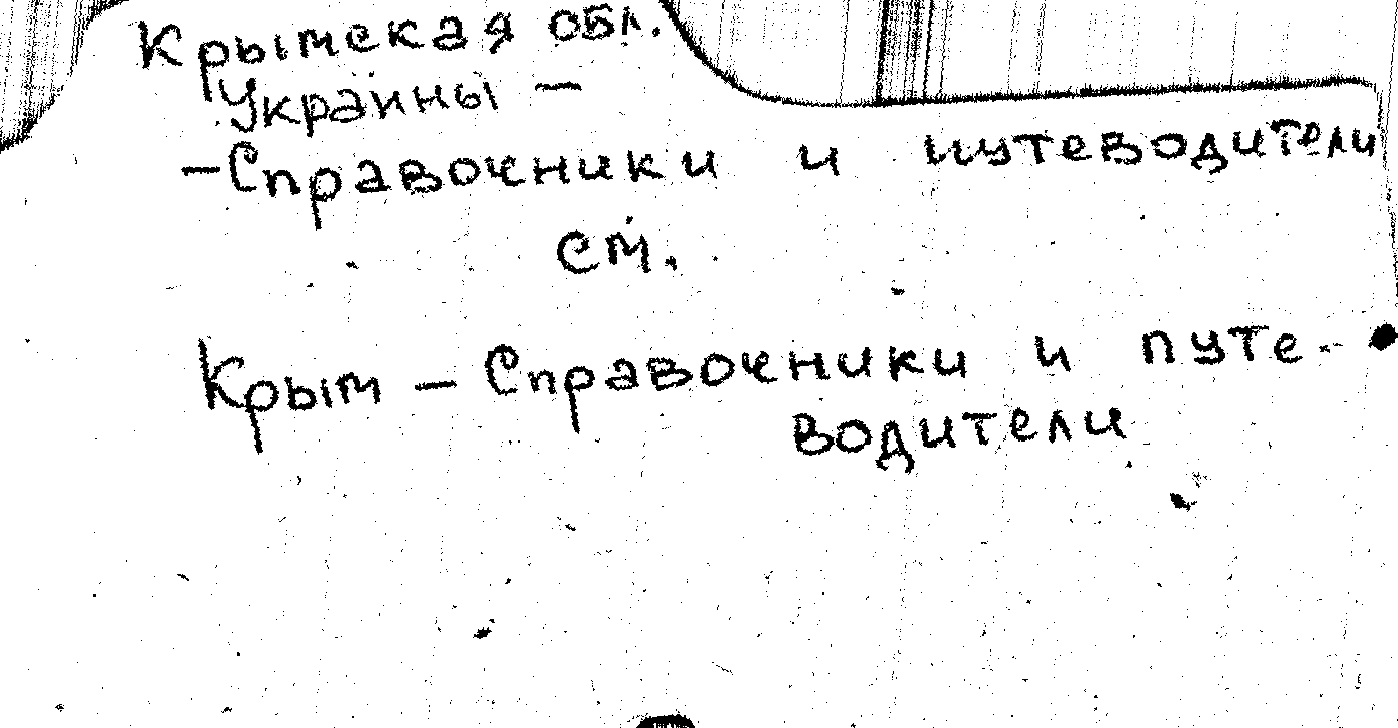 Крымская обл.
Украины —
—Справочники и путеводители
см.
Крым — Справочники и путе-
водители